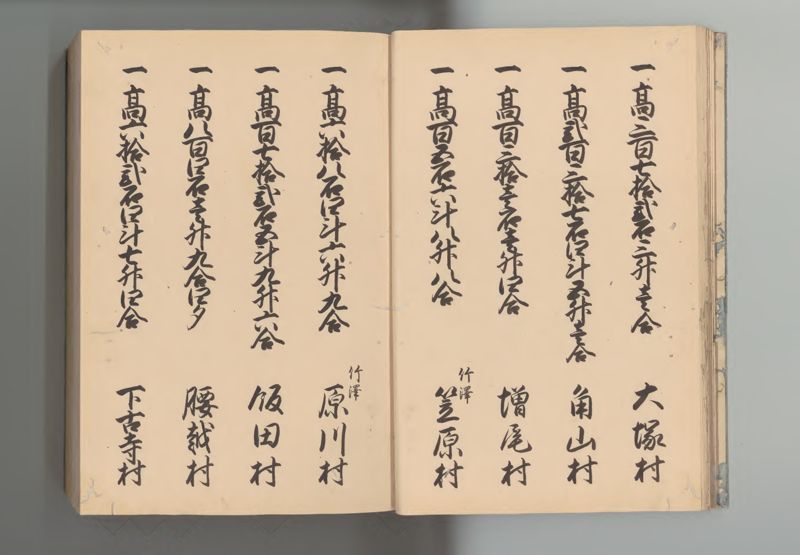 一 高三百七拾弐石三升壱合 大塚村
一 高弐百三拾七石四斗五升壱合 角山村
一 高百三拾壱石壱升四合 増尾村
一 高百五石六斗八升八合 竹澤 笠原村
一 高六拾八石四斗六升九合 竹澤 原川村
一 高百七拾弐石五斗九升六合 飯田村
一 高八百四石壱升九合四夕 腰越村
一 高六拾弐石四斗七升四合 下古寺村